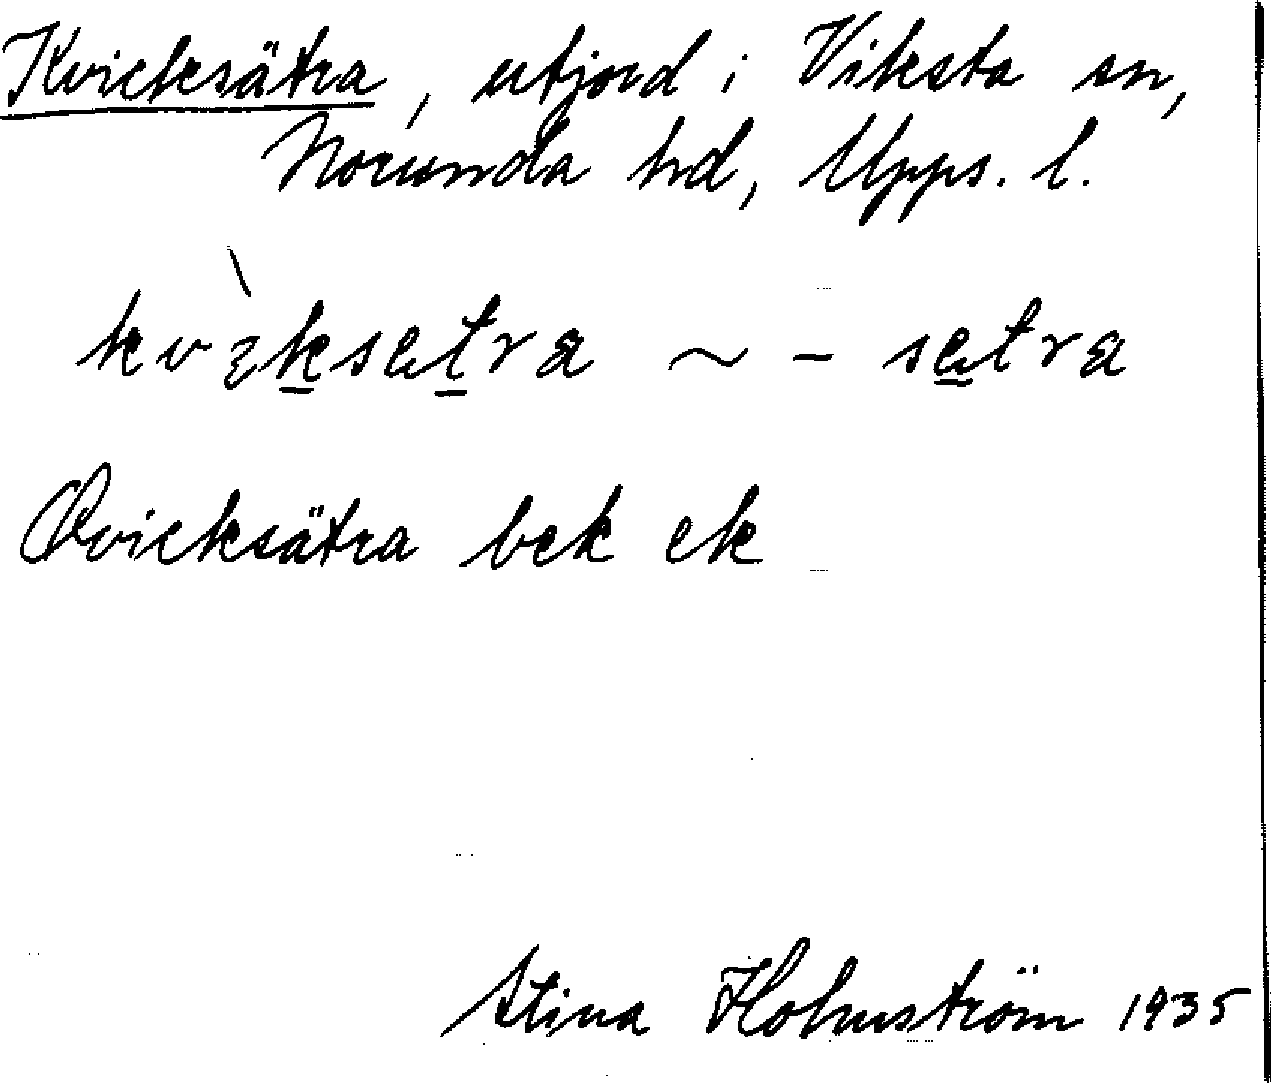 Kvicksätra, utjord i Viksta sn,
Norunda hd, Upps. l.
~ -
Qvicksätra bek ek
Stina Holmström 1935